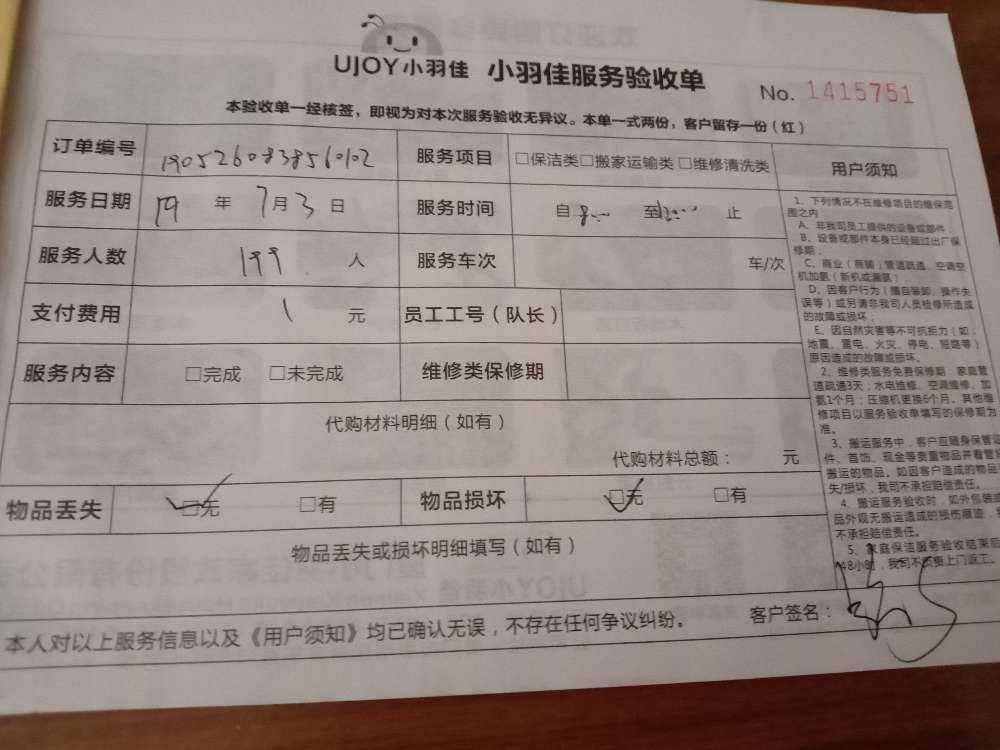 UJOY小羽佳 小羽佳服务验收单 No. 1415751
本验收单一经核签，即视为对本次服务验收无异议。本单一式两份，客户留存一份（红）
订单编号 1905260838560102 服务项目 □保洁类□搬家运输类 □维修清洗类
服务日期 19 年 7月3 日 服务时间 自 8:00 至12:00 止
服务人数 199 人 服务车次 车/次
支付费用 1 元 员工工号（队长）
服务内容 □完成 □未完成 维修类保修期
代购材料明细（如有）
代购材料总额： 元
物品丢失 □无 □有 物品损坏 □无 □有
物品丢失或损坏明细填写（如有）
本人对以上服务信息以及《用户须知》均已确认无误，不存在任何争议纠纷。 客户签名：
用户须知
1、下列情况不在维修项目的维保范
围之内
A、非我司员工提供的设备或部件；
B、设备或部件本身已经超过出厂保
修期；
C、商业（商铺）管道疏通、空调空
机加氨（新机或漏氨）
D、因客户行为（擅自装卸、操作失
误等）或另请非我司人员检修所造成
的故障或损坏；
E、因自然灾害等不可抗拒力（如：
地震、雷电、火灾、停电、短路等）
原因造成的故障或损坏。
2、维修类服务免费保修期 家庭管
道疏通3天；水电维修、空调维修、加
氨1个月；压缩机更换6个月。其他维
修项目以服务验收单填写的保修期为
准。
3、搬运服务中，客户应随身保管证
件、首饰、现金等贵重物品并看管好
搬运的物品。如因客户造成的物品
失/损坏，我司不承担赔偿责任。
4、搬运服务验收时，如外包装或
品外观无搬运造成的损伤痕迹，
不承担赔偿责任。
5、家庭保洁服务验收结束后
48小时，我司不负责上门返工。